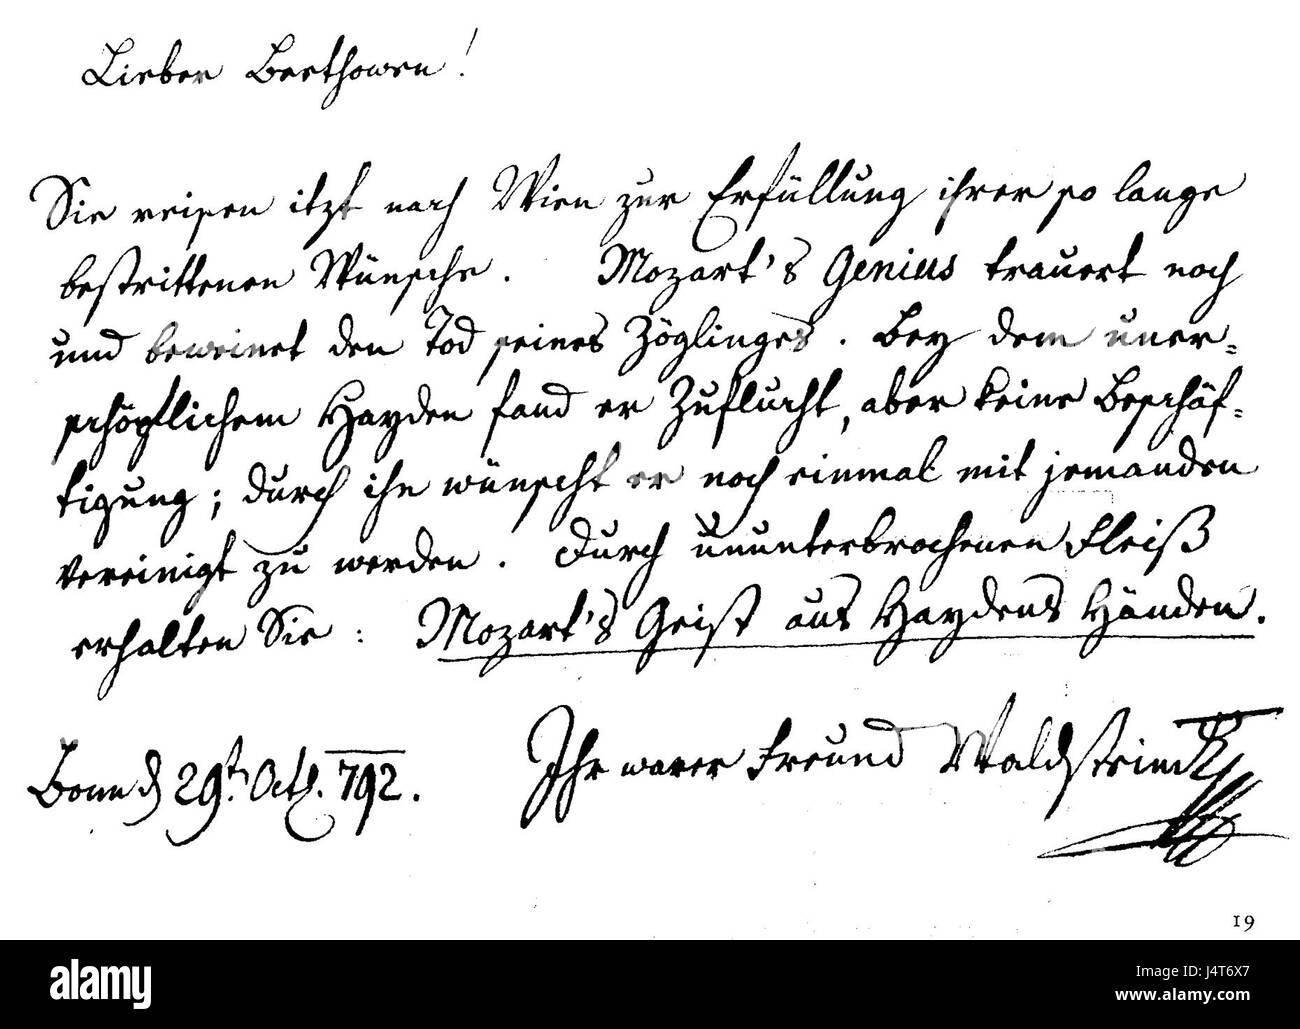 Lieber Beethowen!
Sie reisen itzt nach Wien zur Erfüllung ihrer so lange
bestrittenen Wünsche. Mozart's Genius trauert noch
und beweinet den Tod seines Zöglinges. Bey dem uner=
schöpflichem Hayden fand er Zuflucht, aber keine Beschäf=
tigung; durch ihn wünscht er noch einmal mit jemanden
vereinigt zu werden. Durch ununterbrochenen Fleiß
erhalten Sie: Mozart's Geist aus Haydens Händen.
Bonn d 29t. Oct. 792. Ihr warer Freund Waldstein
19
alamy
Image ID: J4T6X7
www.alamy.com